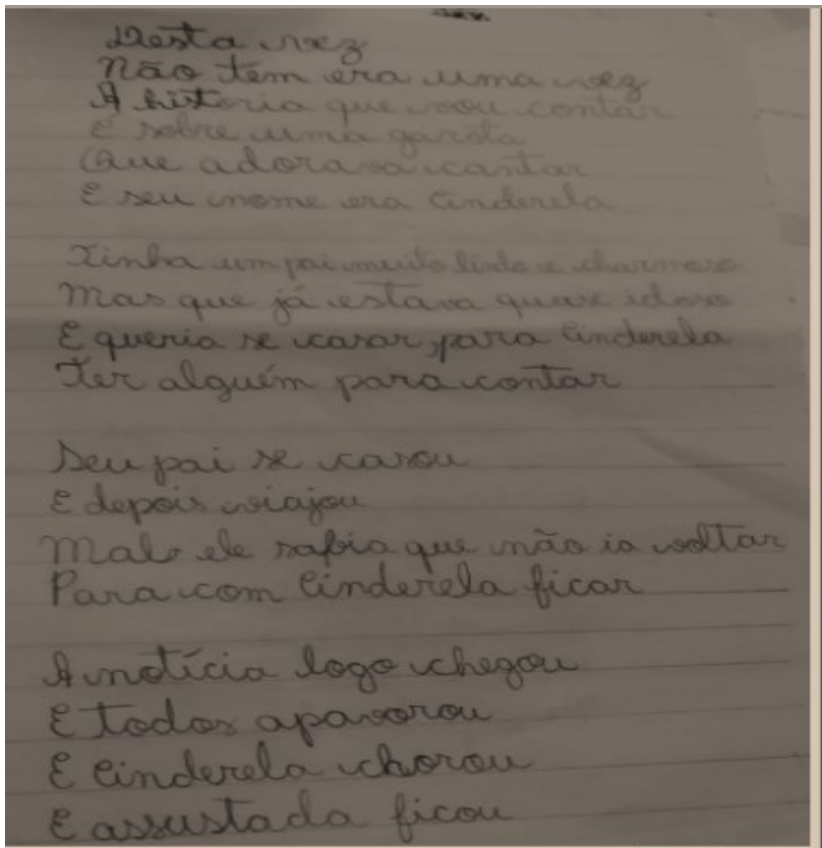 Desta vez
Não tem era uma vez
A historia que vou contar
E sobre uma garota
Que adorava cantar
E seu nome era Cinderela
Tinha um pai muito lindo e charmoso
Mas que já estava quase idoso
E queria se casar, para Cinderela
Ter alguém para contar
Seu pai se casou
E depois viajou
Mal ele sabia que não ia voltar
Para com Cinderela ficar
A notícia logo chegou
E todos apavorou
E Cinderela chorou
E assustada ficou